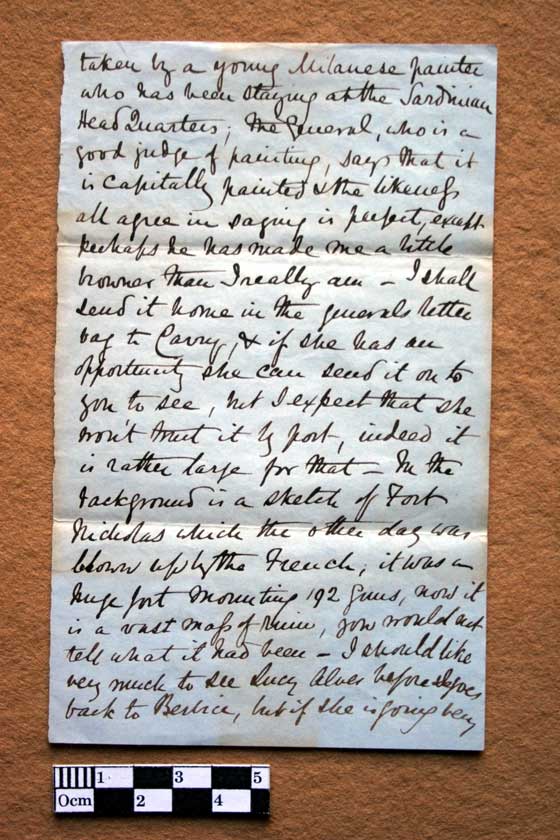 taken by a young Milanese painter
who has been staying at the Sardinian
Head Quarters; the General, who is a
good judge of painting, says that it
is capitally painted & the likeness
all agree in saying is perfect, except
perhaps he has made me a little
browner than I really am - I shall
send it home in the generals letter
bag to Carry, & if she has an
opportunity she can send it on to
you to see, but I expect that she
won't trust it by post, indeed it
is rather large for that - In the
background is a sketch of Fort
Nicholas which the other day was
blown up by the French; it was a
huge fort mounting 192 Guns, now it
is a vast mass of ruin, you would not
tell what it had been - I should like
very much to see Lucy before she goes
back to Berbice, but if she is going very
0cm 1 2 3 4 5